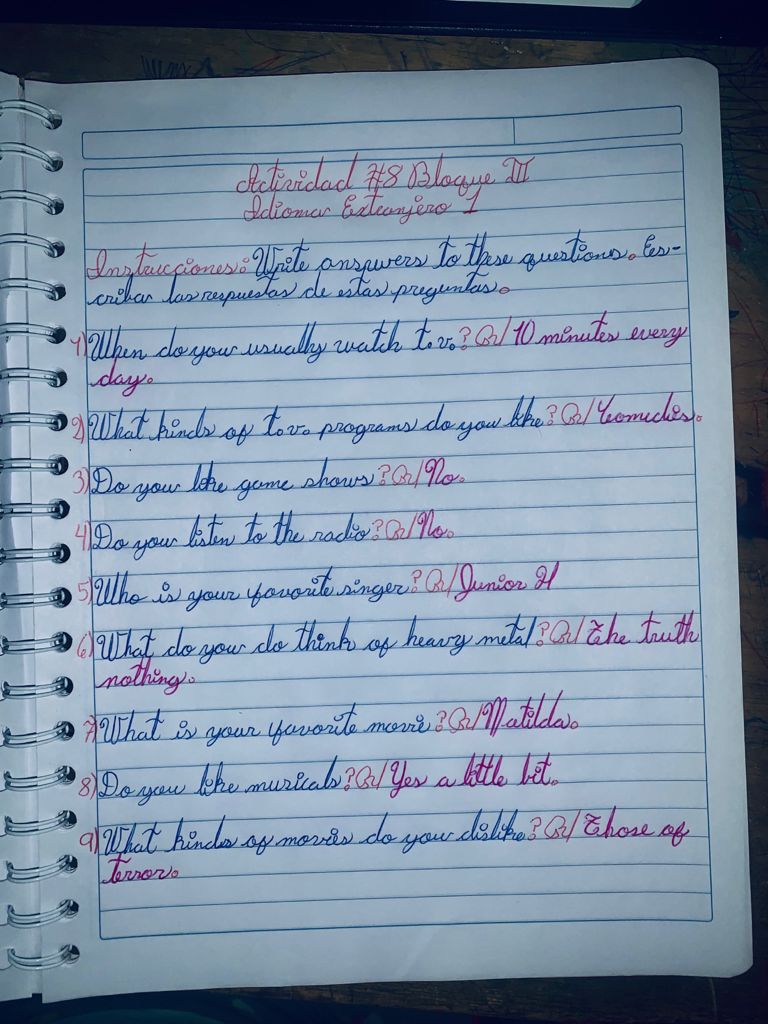 Actividad #8 Bloque III
Idioma Extranjero 1
Instrucciones: Write answers to these questions. Es-
criba las respuestas de estas preguntas.
1) When do you usually watch t.v.? R/ 10 minutes every
day.
2) What kinds of t.v. programs do you like? R/
3) Do you like game shows? R/ No.
4) Do you listen to the radio? R/ No.
5) Who is your favorite singer? R/ Junior H
6) What do you do think of heavy metal? R/ The truth
nothing.
7) What is your favorite movie? R/ Matilda.
8) Do you like musicals? R/ Yes a little bit.
9) What kinds of movies do you dislike? R/ Those of
terror.